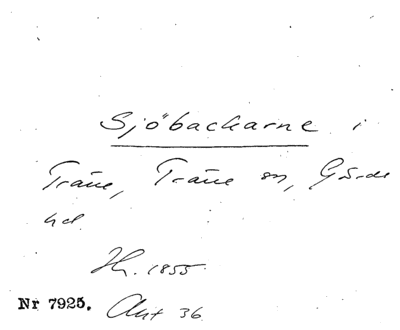 Sjöbackarne i
Träne, Träne sn, Gärds
hd.
Hk. 1855.
Nr 7925. Akt 36